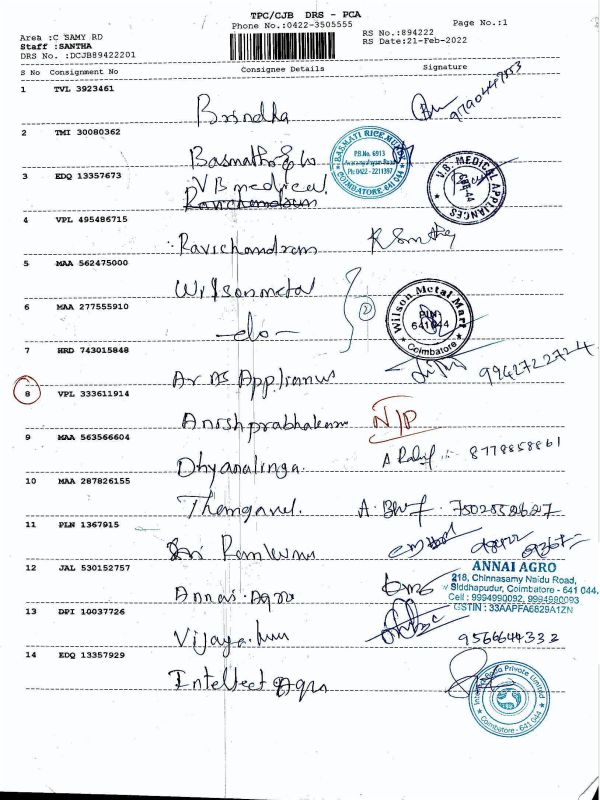 TPC/CJB DRS - PCA
Phone No.:0422-3505555
Page No.:1
Area :C SAMY RD
RS No.:894222
Staff :SANTHA
RS Date:21-Feb-2022
DRS No. :DCJB89422201
S No Consignment No Consignee Details Signature
1 TVL 3923461
Brindha
2 TMI 30080362
BASMATI RICE MUNDY
P.B.No. 6913
Ph: 0422 - 2211397
COIMBATORE 641 044
3 EDQ 13357673
VB medical
Ravichandran
V.B. MEDICAL APPLIANCES
4 VPL 495486715
Ravichandran
5 MAA 562475000
Wilson metal
2
Wilson Metal Mart
PIN
641 044
Coimbatore
6 MAA 277555910
-do-
7 HRD 743015848
9942722724
8 VPL 333611914
Anishprabhakaran N/P
9 MAA 563566604
Dhyanalinga 8778858861
10 MAA 287826155
Thangavel
11 PLN 1367915
Sri
12 JAL 530152757
Annai Agro
ANNAI AGRO
218, Chinnasamy Naidu Road,
Siddhapudur, Coimbatore - 641 044.
Cell : 9994990092, 9994980093
GSTIN : 33AAPFA6829A1ZN
13 DPI 10037726
9566644332
14 EDQ 13357929
Intellect Agro
Private Limited
Coimbatore - 641 044